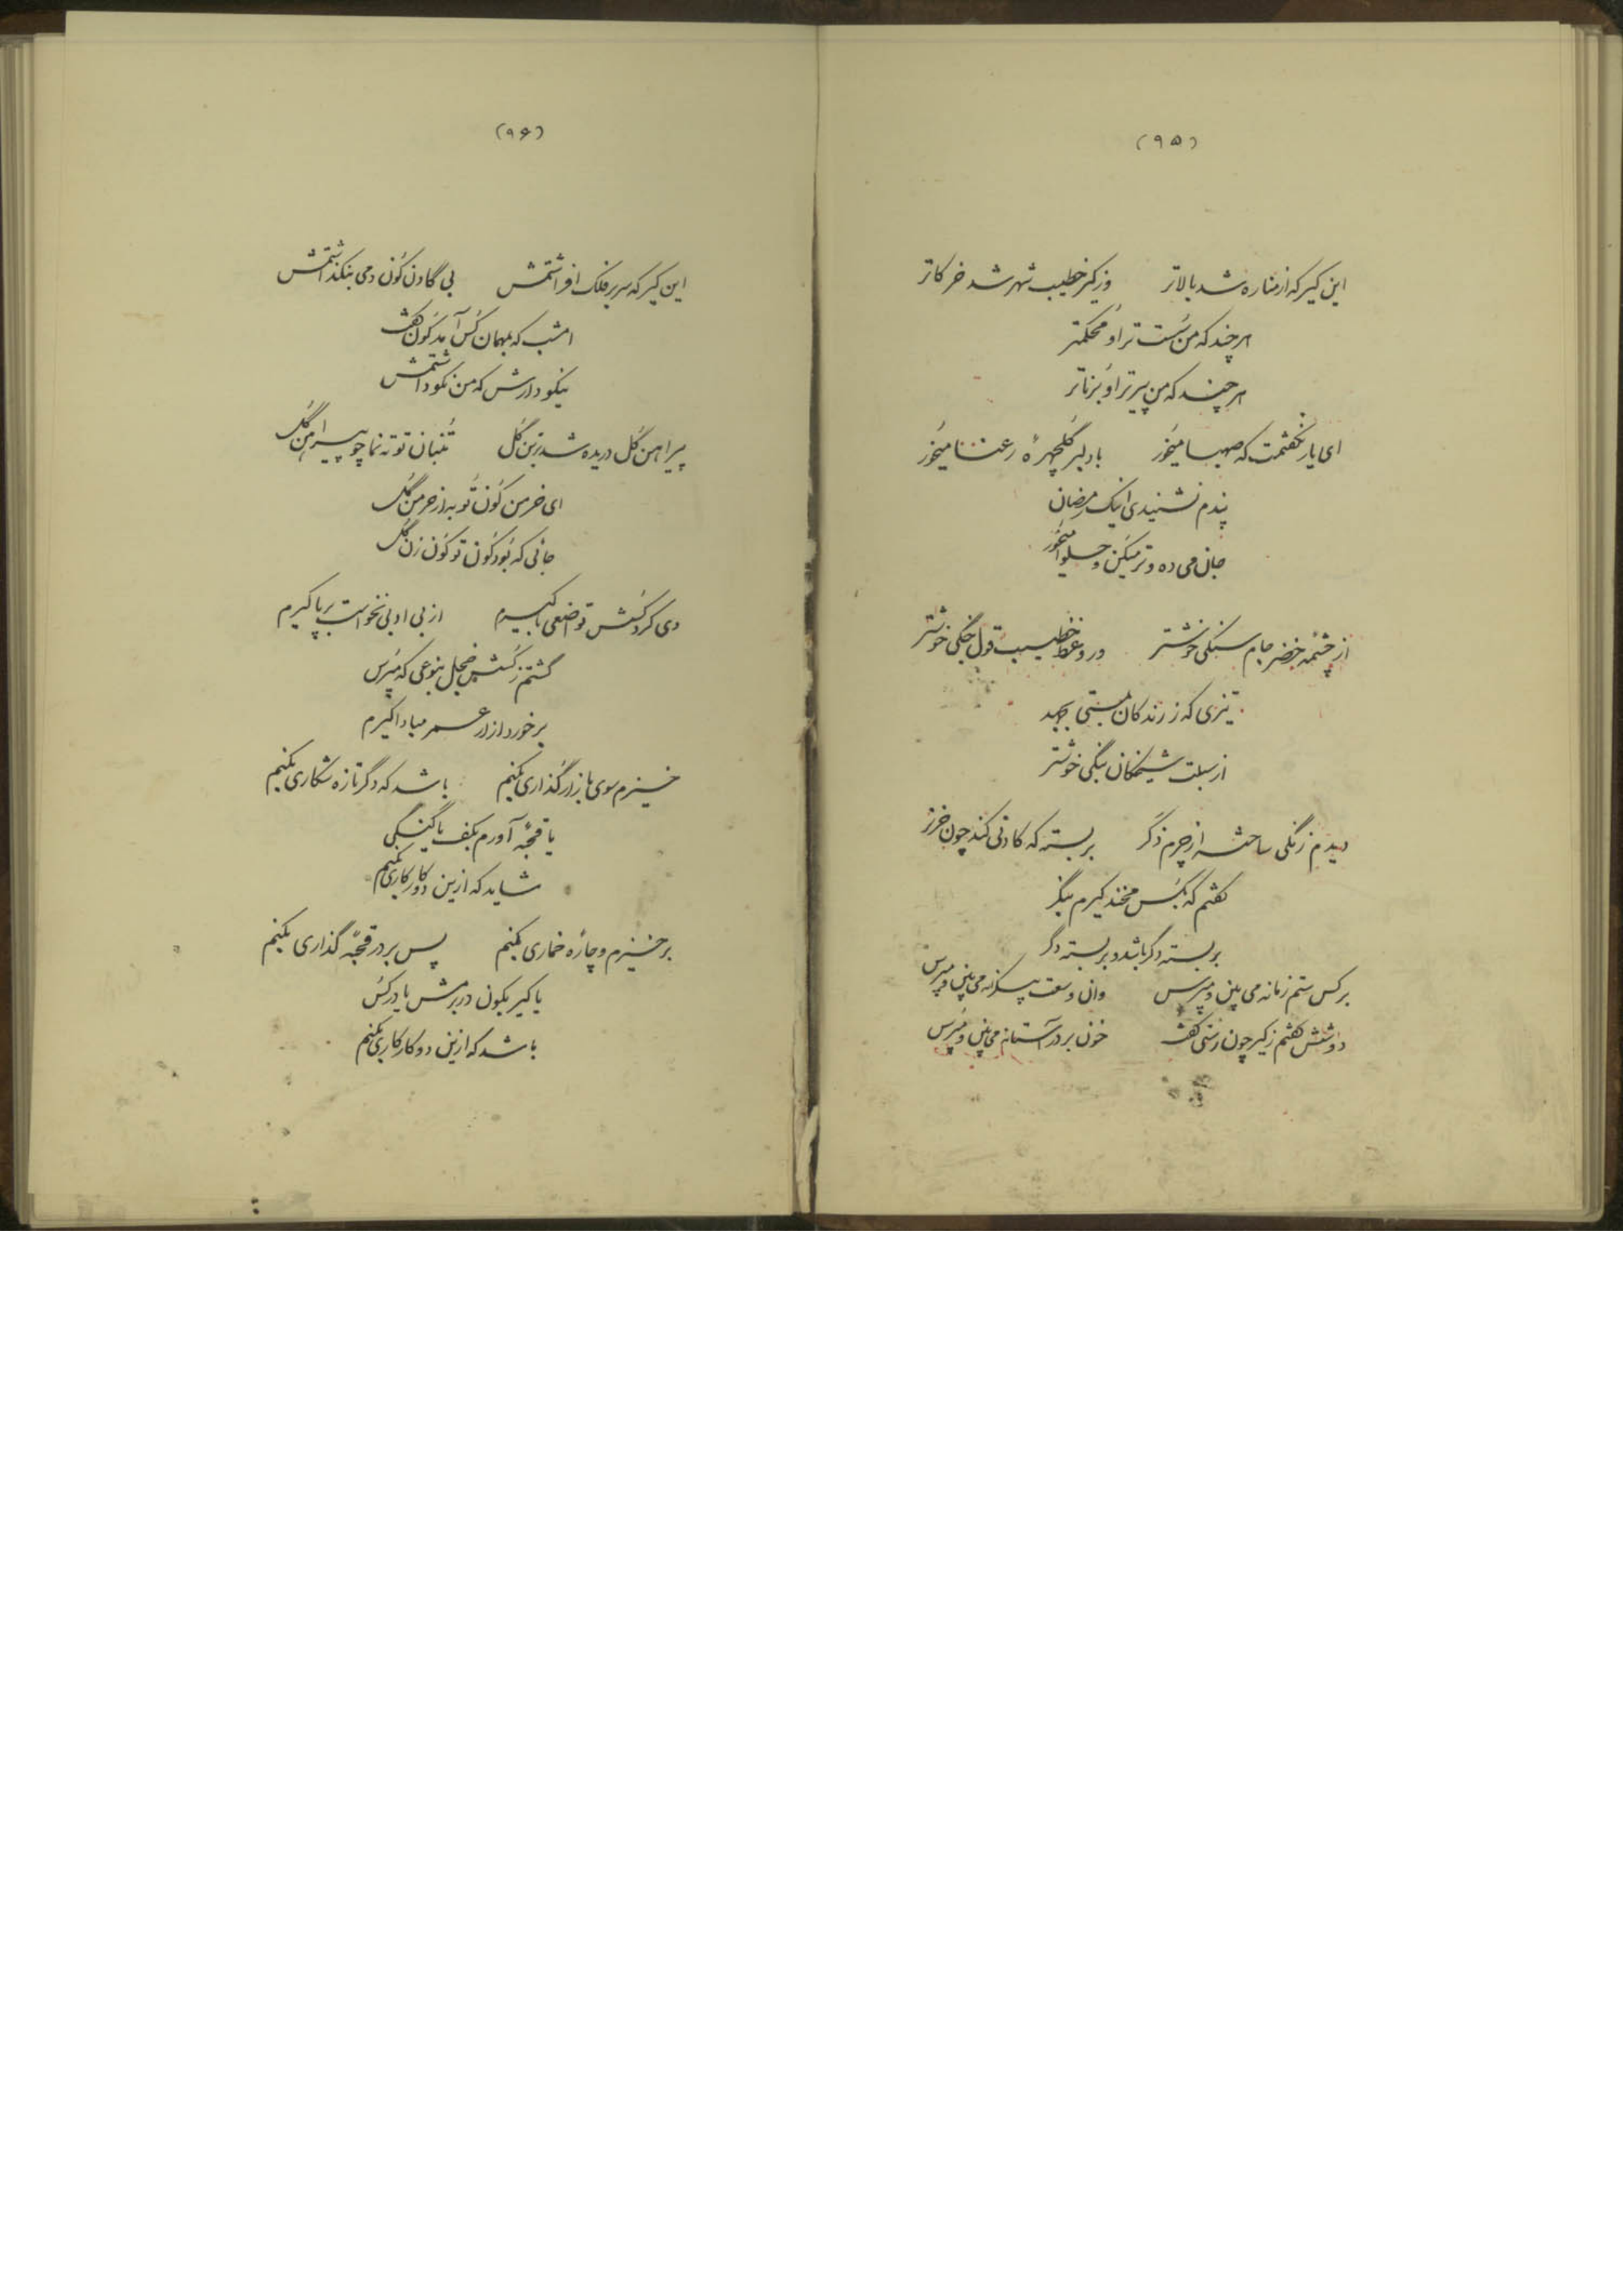 (۹۵)
این کیر که از مناره شد بالاتر وز کیر خطیب شهر شد خر کاتر
هر چند که من سست تر او محکمتر
هر چند که من پیرتر او برناتر
ای یار نگفتمت که صهبا میخور با دلبر گلچهرهٔ رعنا میخور
پندم نشنیدی اینک رمضان
جان می ده و تر میکن و حلوا میخور
از چشمه خضر جام سنگی خوشتر ور وعظ خطیب قول چنگی خوشتر
تیزی که ز رندکان بمستی بجهد
از سبلت شیخکان بنگی خوشتر
دیدم زنگی ساخته از چرم ذکر بربسته که کادنی کند چون خر نر
گفتم که بکس مخند کیرم بنگر
بربسته دگر باشد و بربسته دگر
بر کس ستم زمانه می بین و مپرس وان وسعت بیکرانه می بین و مپرس
دوشش گفتم ز کیر چون رستی گفت خون بر در آستانه می بین و مپرس
(۹۶)
این کیر که سر بر فلک افراشتمش بی گادن کون دمی بنگذاشتمش
امشب که بمهمان کس آمد کون گفت
نیکو دارش که من نکو داشتمش
پیراهن گل دریده شد بر تن گل تنبان تو ته نما چو پیراهن گل
ای خرمن کون تو به از خرمن گل
جائی که بود کون تو کون زن گل
دی کرد کسش تواضعی با کیرم از بی ادبی نخواست بر پا کیرم
گشتم ز کسش خجل بنوعی که مپرس
برخوردار از عمر مبادا کیرم
خیزم سوی بازار گذاری بکنم باشد که دگر تازه شکاری بکنم
یا قحبهٔ آورم بکف یا کنگی
شاید که ازین دو کار کاری بکنم
برخیزم و چارهٔ خماری بکنم پس بر در قحبهٔ گذاری بکنم
یا کیر بکون در برمش یا در کس
باشد که ازین دو کار کاری بکنم